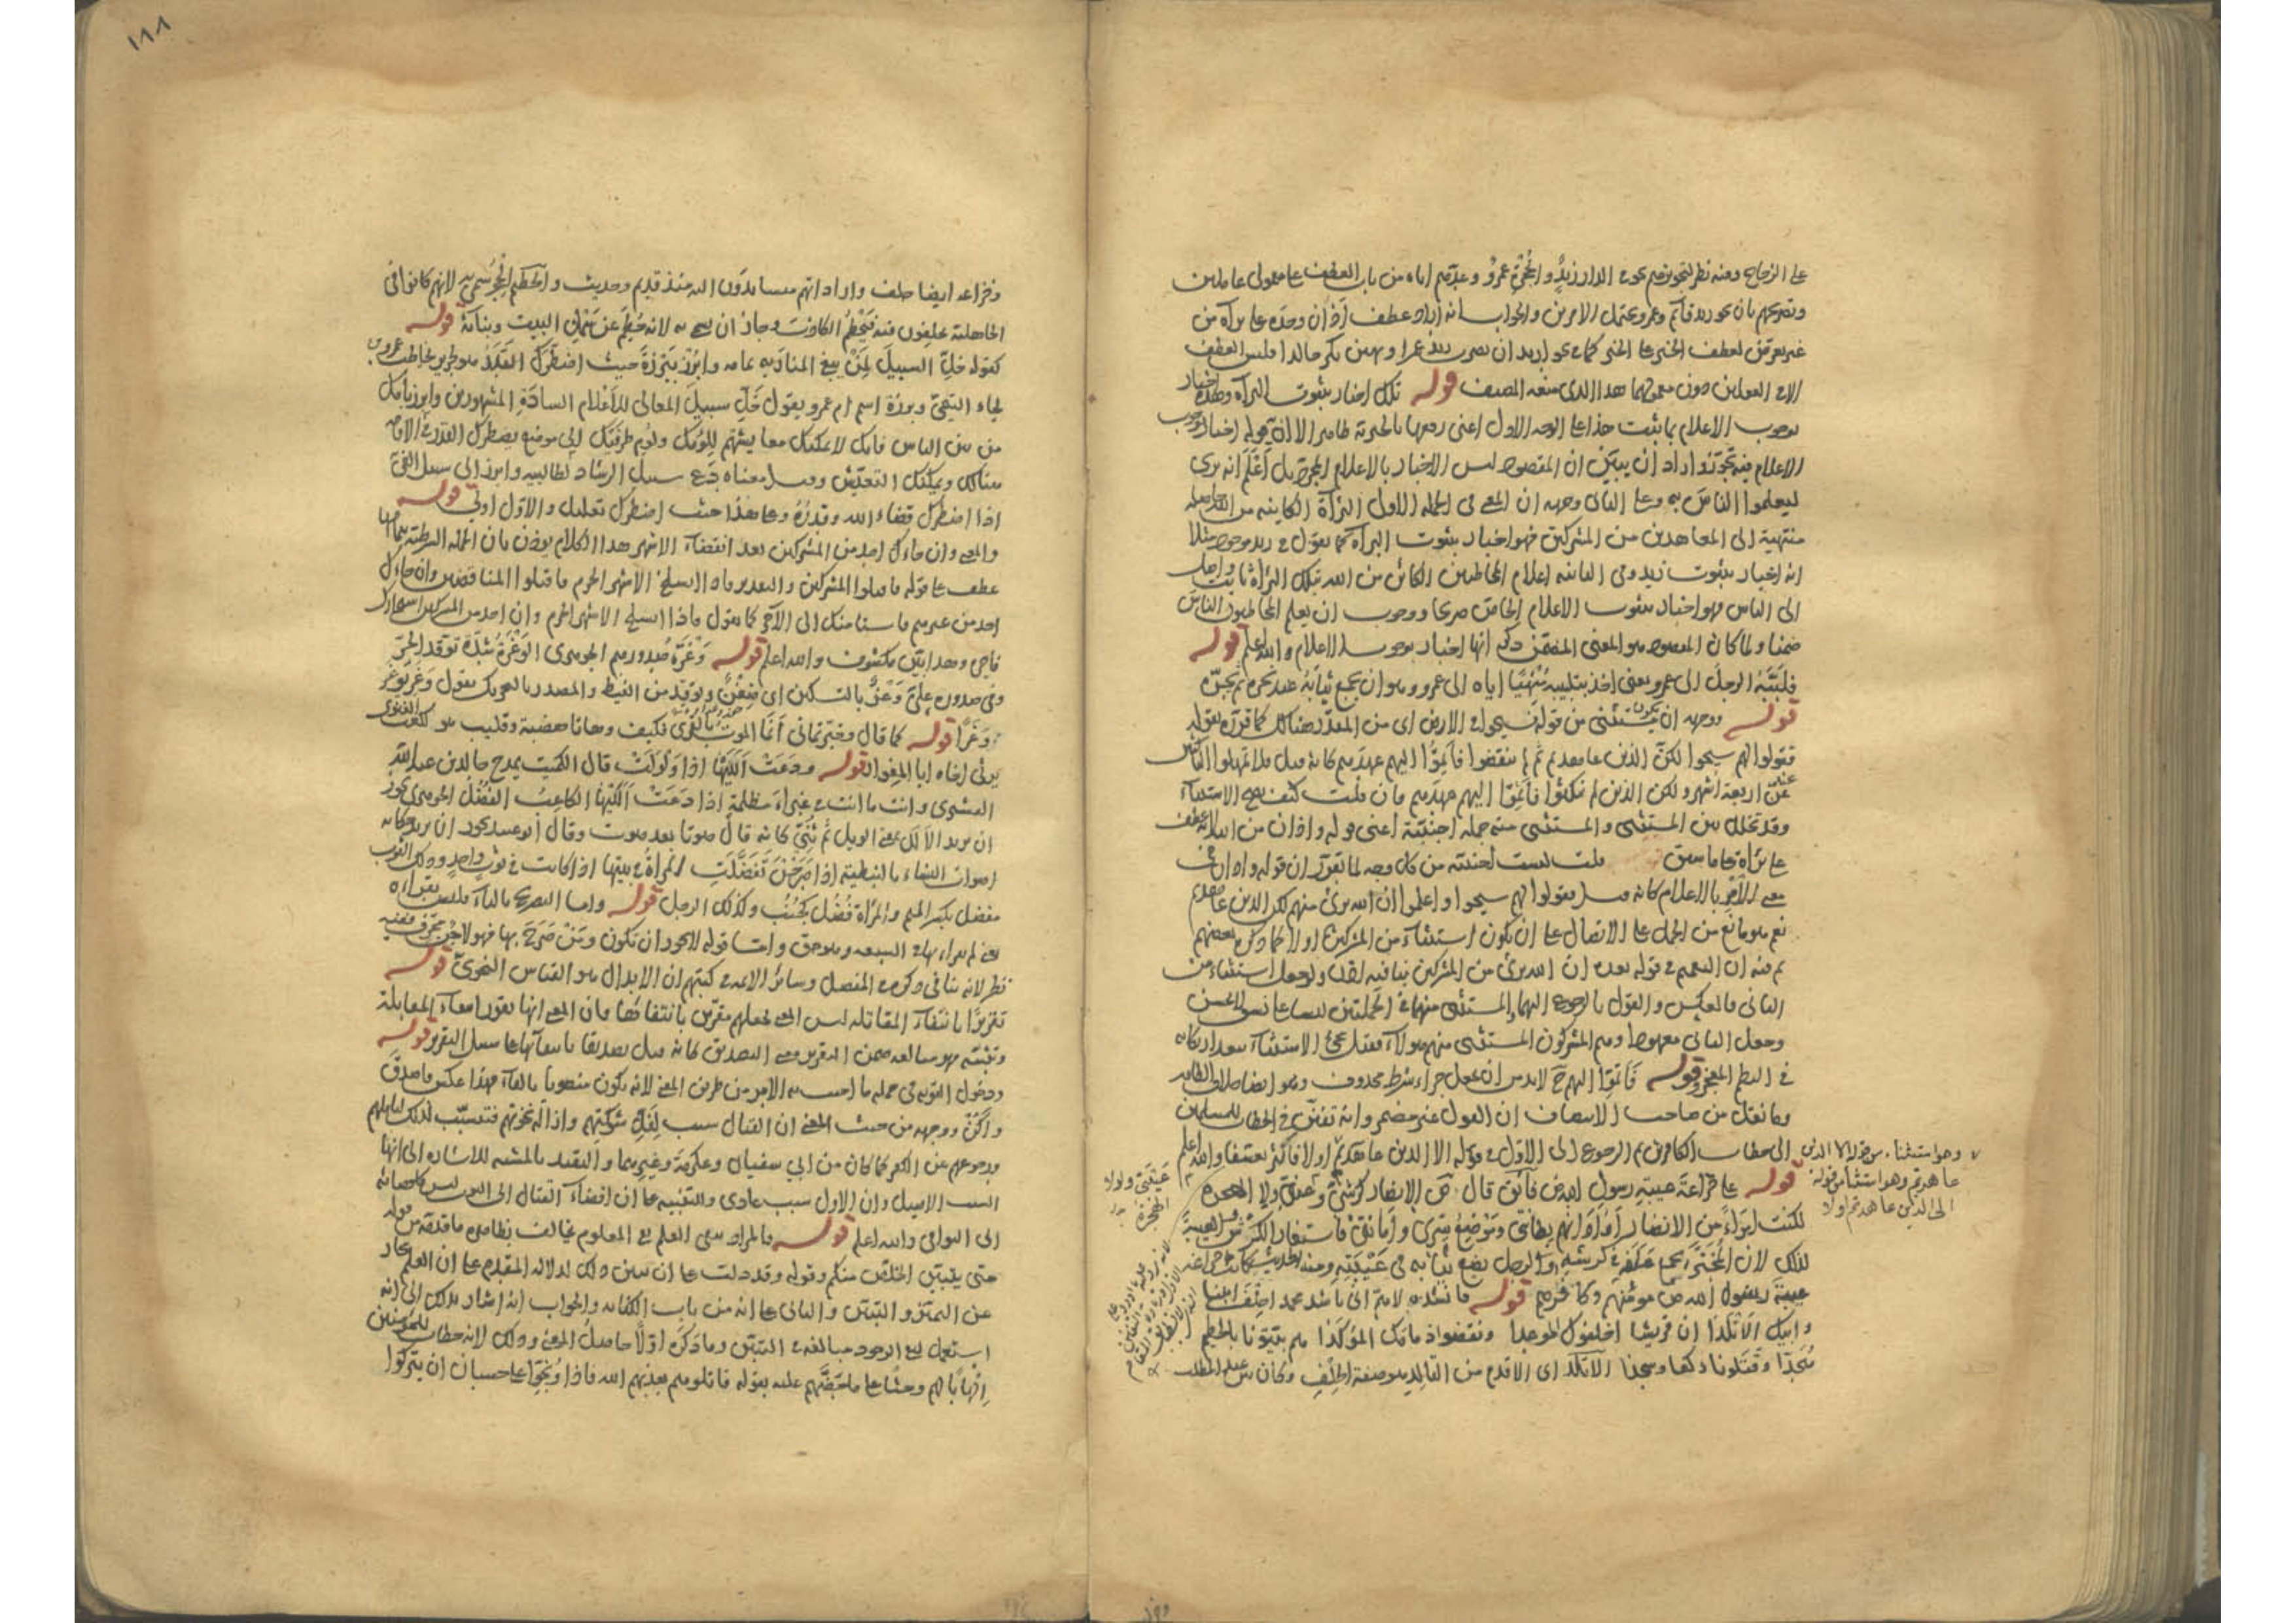 على الزجاج وفيه نظر لتجويزهم نحو في الدار زيدٌ والحُجْرةِ عمروٌ وعدّهم اياه من باب العطف على معمولي عاملين
وتصريحهم بان نحو زيد قائم وعمرو يحتمل الامرين والجواب انه اراد عطف اَذَان وحده على براءة من
غير تعرّض لعطف الخبر على الخبر كما في نحو اريد ان يضرب زيد عمرا ويهين بكر خالدا فليس العطف
الا في العوامل دون معموليها هذا الذي منعه المصنف قوله تلك اخبار بثبوت البراءة وهذه اخبار
بوجوب الاعلام بما ثبت هذا على الوجه الاول اعني رفعها بالخبرية ظاهر الا ان قوله اخبار بوجوب
الاعلام فيه تجوّز واراد ان يبيّن ان المقصود ليس الاخبار بالاعلام بل اَعْلَمَ انه بري
ليعلموا الناس به وعلى الثاني وجهه ان المعنى في الجملة الاولى البراءة الكائنة من الله حاصلة
منتهية الى المعاهدين من المشركين فهو اخبار بثبوت البراءة كما تقول في زيد موجود مثلا
انه اخبار بثبوت زيد وفي الثانية اعلام المخاطبين الكائن من الله بتلك البراءة ثابت واصل
الى الناس فهو اخبار بثبوت الاعلام الخاص صريحا ووجوب ان يعلم المخاطبون الناسَ
ضمنا ولما كان المقصود هو المعنى المضمّن ذكر انها اخبار بوجوب الاعلام والله اعلم قوله
فلبّبَهُ الرجلُ الى عمر يعني اخذ بتلبيبه مُنْهيًا اياه الى عمر وهو ان يجمع ثيابَهُ عند نحره ثم يجرّه
قوله ووجهه ان يكون مستثنى من قوله فسيحوا في الارض اي من المقدّر هنالك كما قرّره بقوله
فقولوا لهم سيحوا لكنّ الذين عاهدتم ثم لم ينقضوا فاَتِمّوا اليهم عهدهم كانه قيل فلا تمهلوا الناكثين
غير اربعة اشهر ولكن الذين لم ينكثوا فاتِمّوا اليهم عهدهم فان قلت كيف يصح الاستثناء
وقد تخلل بين المستثنى والمستثنى منه جملة اجنبيّة اعني قوله واذان من الله لانه عطف
على براءة على ما سبق قلت ليست اجنبية من كل وجه لما تقرر ان قوله واذان في
معنى الاَمْرِ بالاعلام كانه قيل فقولوا لهم سيحوا واعلموا ان الله بريٌ منهم لكن الذين عاهدتم
نعم هو مانع من الحمل على الاتصال على ان يكون استثناء من المشركين اولا كما ذكره بعضهم
ثم فيه ان التعميم في قوله بعده ان الله بريٌ من المشركين ينافيه ولو جعل استثناء من
الثاني فالعكس والقول بالرجوع اليهما والمستثنى منهما في الجملتين ليسا على نسق لا يحسن
وجعل الثاني معهودا وهم المشركون المستثنى منهم هؤلاء فقيل مجيء الاستثناء بعد ارتكاب
في النظم المعجز وقوله فَاَتِمّوا اليهم ح لا بد من ان يجعل جزاء شرط محذوف وهو ايضا خلاف الظاهر
وما نقل من صاحب الانصاف ان القول غير مضمر وانه تفنّن في الخطاب للمسلمين
الى خطاب الكافرين ثم الرجوع الى الاوّل في قوله الا الذين عاهدتم اولا فاكثر تعسّفا والله اعلم
قوله على خزاعةَ عيبةِ رسول الله ص فائق قال ص الانصار كرشي وعيبتي ولولا الهجرة
لكنت امرَاءً من الانصار اراد انهم بطانتي وموْضع سرّي واَمانتي فاستعار الكرش والعيبةَ
لذلك لان المُجْتَرَّ يجمع عَلَفه في كرشه والرجل يضع ثيابه في عَيْبَتِه ومنه الحديث كانت خزاعة
عيبةَ رسول الله ص مومنهم وكافرهم قوله فانشده لا هم اني ناشد محمدا حِلْفَ ابينا
وابيك الاَتْلَدَا ان قريشا اخلفوك الموعدا ونقضوا ذمامك المؤكدا هم بيّتونا بالحطيم
هُجّدا وقَتَلونا ركعا وسجدا الاَتلد اي الاقدم من التالد وهو صفة الحِلْف وكان بين عبد المطلب
وهو استثناء من قوله الا الذين
عاهدتم وهو استثناء من قوله
الى الذين عاهدتم اولا
عيبتي ولولا
الهجرة
١٨٨
وخزاعة ايضا حلف واراد انهم متساندون اليه منذ قديم وحديث والحطيم الحِجْر سمي به لانهم كانوا في
الجاهلية يحلفون فيه فيَحْطِمُ الكاذبَ وجاز ان يسمى به لانه حُطِمَ عن سَمْكِ البيت وبنائه قوله
كقوله خلِّ السبيلَ لِمَنْ يبني المنار به تمامه وابرُزْ ببَرْزَةَ حيث اضطرّك القَدَرُ هو لجرير يخاطب عمرو بن
لجاء التيميّ وبرزة اسم ام عمرو يقول خَلِّ سبيلَ المعالي للاَعْلام السادَةِ المشهورين وابرز بامك
من بين الناس فانك لا يمكنك معايشتهم للؤمك ولؤم طرفيك الى موضع يضطرك القدر الى الاقامة
هنالك ويمكنك التعيّش وقيل معناه دَع سبيل الرشاد لطالبيه وابرز الى سبيل الغيّ
اذا اضطرك قضاء الله وقدرُهُ وعلى هذا حيث اضطرك تعليل والاوّل اولى قوله
والمعنى وان جاءك احد من المشركين بعد انقضاء الاشهر هذا الكلام يؤذن بان الجملة الشرطية بتمامها
عطف على قوله فاقتلوا المشركين والتقدير فاذا انسلخ الاشهر الحرم فاقتلوا المناقضين وان جاءك
احد من غيرهم فاستامنك الى الآخر كما تقول فاذا انسلخ الاشهر الحرم وان احد من المشركين استجارك
فاجره وهذا بيّن مكشوف والله اعلم قوله وَغْرَةُ صدورهم الجوهري الوَغْرَةُ شدّة توقّد الحرّ
وفي صدوره عليَّ وَغْرٌ بالتسكين اي ضِغْنٌ وتوقّد من الغيظ والمصدر بالتحريك تقول وَغِرَ يوغَر
وَغَرًا قوله كما قال وخبّرتماني اَنّما الموتُ بالقُرى فكيف وهاتا هضبة وقليب هو لكعب الغنوي
يرثي اخاه ابا المغوار قوله ودَعَتْ اَلَلَيْها اذا ولولت قال الكميت يمدح خالد بن عبد الله
القسري وانت ما انت في غبراءَ مظلمةٍ اذا دَعَتْ اَلَلَيْها الكاعبُ الفُضُلُ الجوهري يجوز
ان يريد الاَلَل بمعنى الويل ثم ثُنِّيَ كانه قال صوتا بعد صوت وقال ابو عبيد يجوز ان يريد حكاية
اصوات النساء بالنبطية اذا صَرَخْنَ تفضّلت المراَة في بيتها اذا كانت في ثوب واحد وذلك الثوب
مفضل بكسر الميم والمراَة فُضُل كجُنُب وكذلك الرجل قوله واما التصريح بالياء فليس بقراءة
يعني لم يقراء بها في السبعة وهو حق واما قوله لا يجوز ان تكون ومَنْ صَرّحَ بها فهو لاحِنٌ محرّف ففيه
نظر لانه ينافي ذكره في المفصل وسائر الائمة في كتبهم ان الابدال هو القياس النحويّ قوله
تقريرًا بانتفاء المقاتلة ليس المعنى لجعلهم مقرّين بانتفائها فان المعنى انها تقرر انتفاء المقابلة
قوله
ودخول التوبة في جملة ما اجيب به الامر من طريق المعنى لانه يكون منصوبا بالفاء فهذا عكس فاصدق
واكُنْ ووجهه من حيث المعنى ان القتال سبب لفَلِّ شوكتهم وازالة نخوتهم فتسبّب لذلك لتاملهم
ورجوعهم عن الكفر كما كان من ابي سفيان وعكرمة وغيرهما والتقييد بالمشية للاشارة الى انها
السبب الاصيل وان الاول سبب عادي وللتنبيه على ان افضاء القتال الى التوبة ليس كافضائه
الى البواقي والله اعلم قوله فالمراد بنفي العلم نفي المعلوم يخالف بظاهره ما قدمه من قوله
حتى يتبيّن الخلّص منكم وقوله وقد دلت على ان تبين ذلك لدلالة المتقدم على ان العلم مجاز
عن التميّز والتبيّن والثاني على انه من باب الكناية والجواب انه اشار بذلك الى انه
استعمل لنفي الوجود مبالغة في التبيّن وما ذكره اوّلًا حاصلُ المعنى وذلك لانه خطاب للمؤمنين
اِلهابًا لهم وحثًّا على ما حضّهم عليه بقوله قاتلوهم يعذبهم الله فاذا وُبّخوا على حسبان ان يتركوا